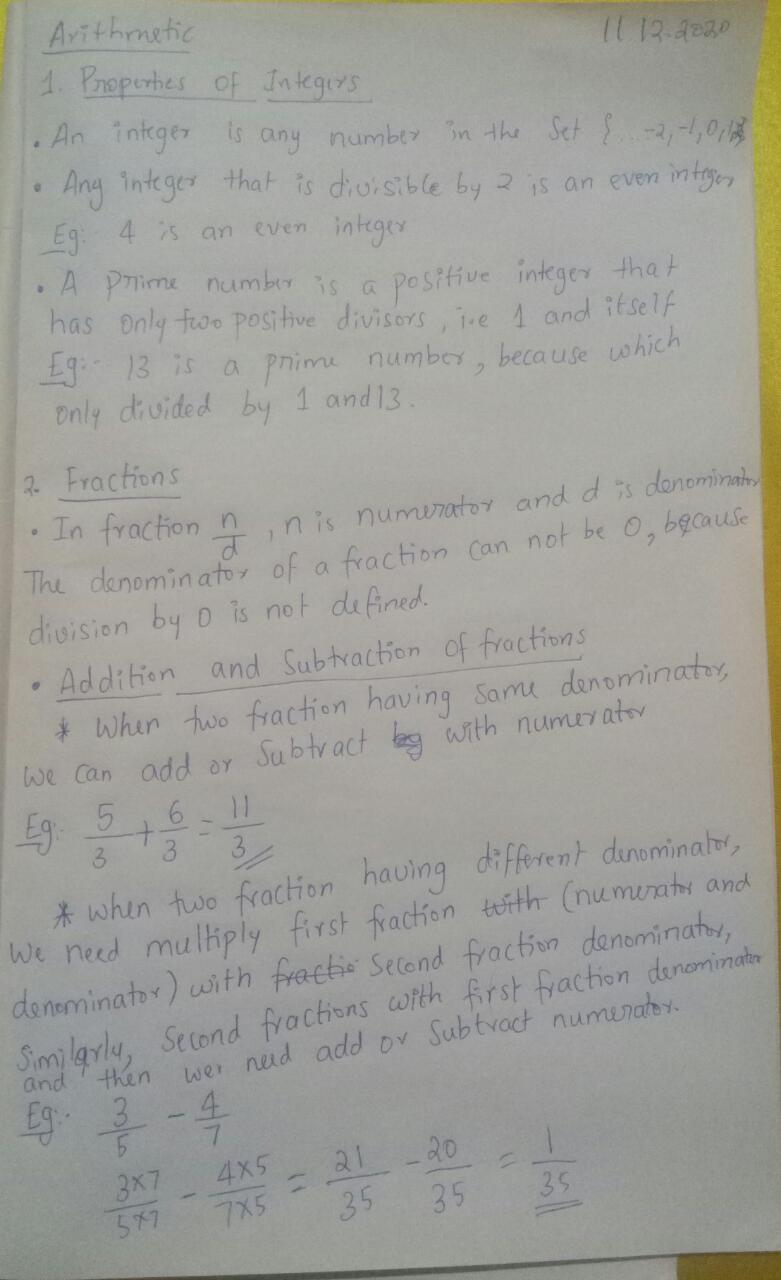 Arithmetic 11 12.2020
1. Properties of Integers
• An integer is any number in the Set {...-2,-1,0,1,
• Any integer that is divisible by 2 is an even integer
Eg:- 4 is an even integer
• A Prime number is a positive integer that
has only two positive divisors, i.e 1 and itself
Eg:- 13 is a prime number, because which
only divided by 1 and 13.
2. Fractions
• In fraction n/d, n is numerator and d is denominator
The denominator of a fraction can not be 0, because
division by 0 is not defined.
• Addition and Subtraction of fractions
* When two fraction having same denominator,
we can add or Subtract with numerator
Eg:- 5/3 + 6/3 = 11/3
* when two fraction having different denominator,
We need multiply first fraction with (numerator and
denominator) with fractio Second fraction denominator,
Similarly, Second fractions with first fraction denominator
and then wer need add or Subtract numerator.
Eg:- 3/5 - 4/7
3x7/5x7 - 4x5/7x5 = 21/35 - 20/35 = 1/35